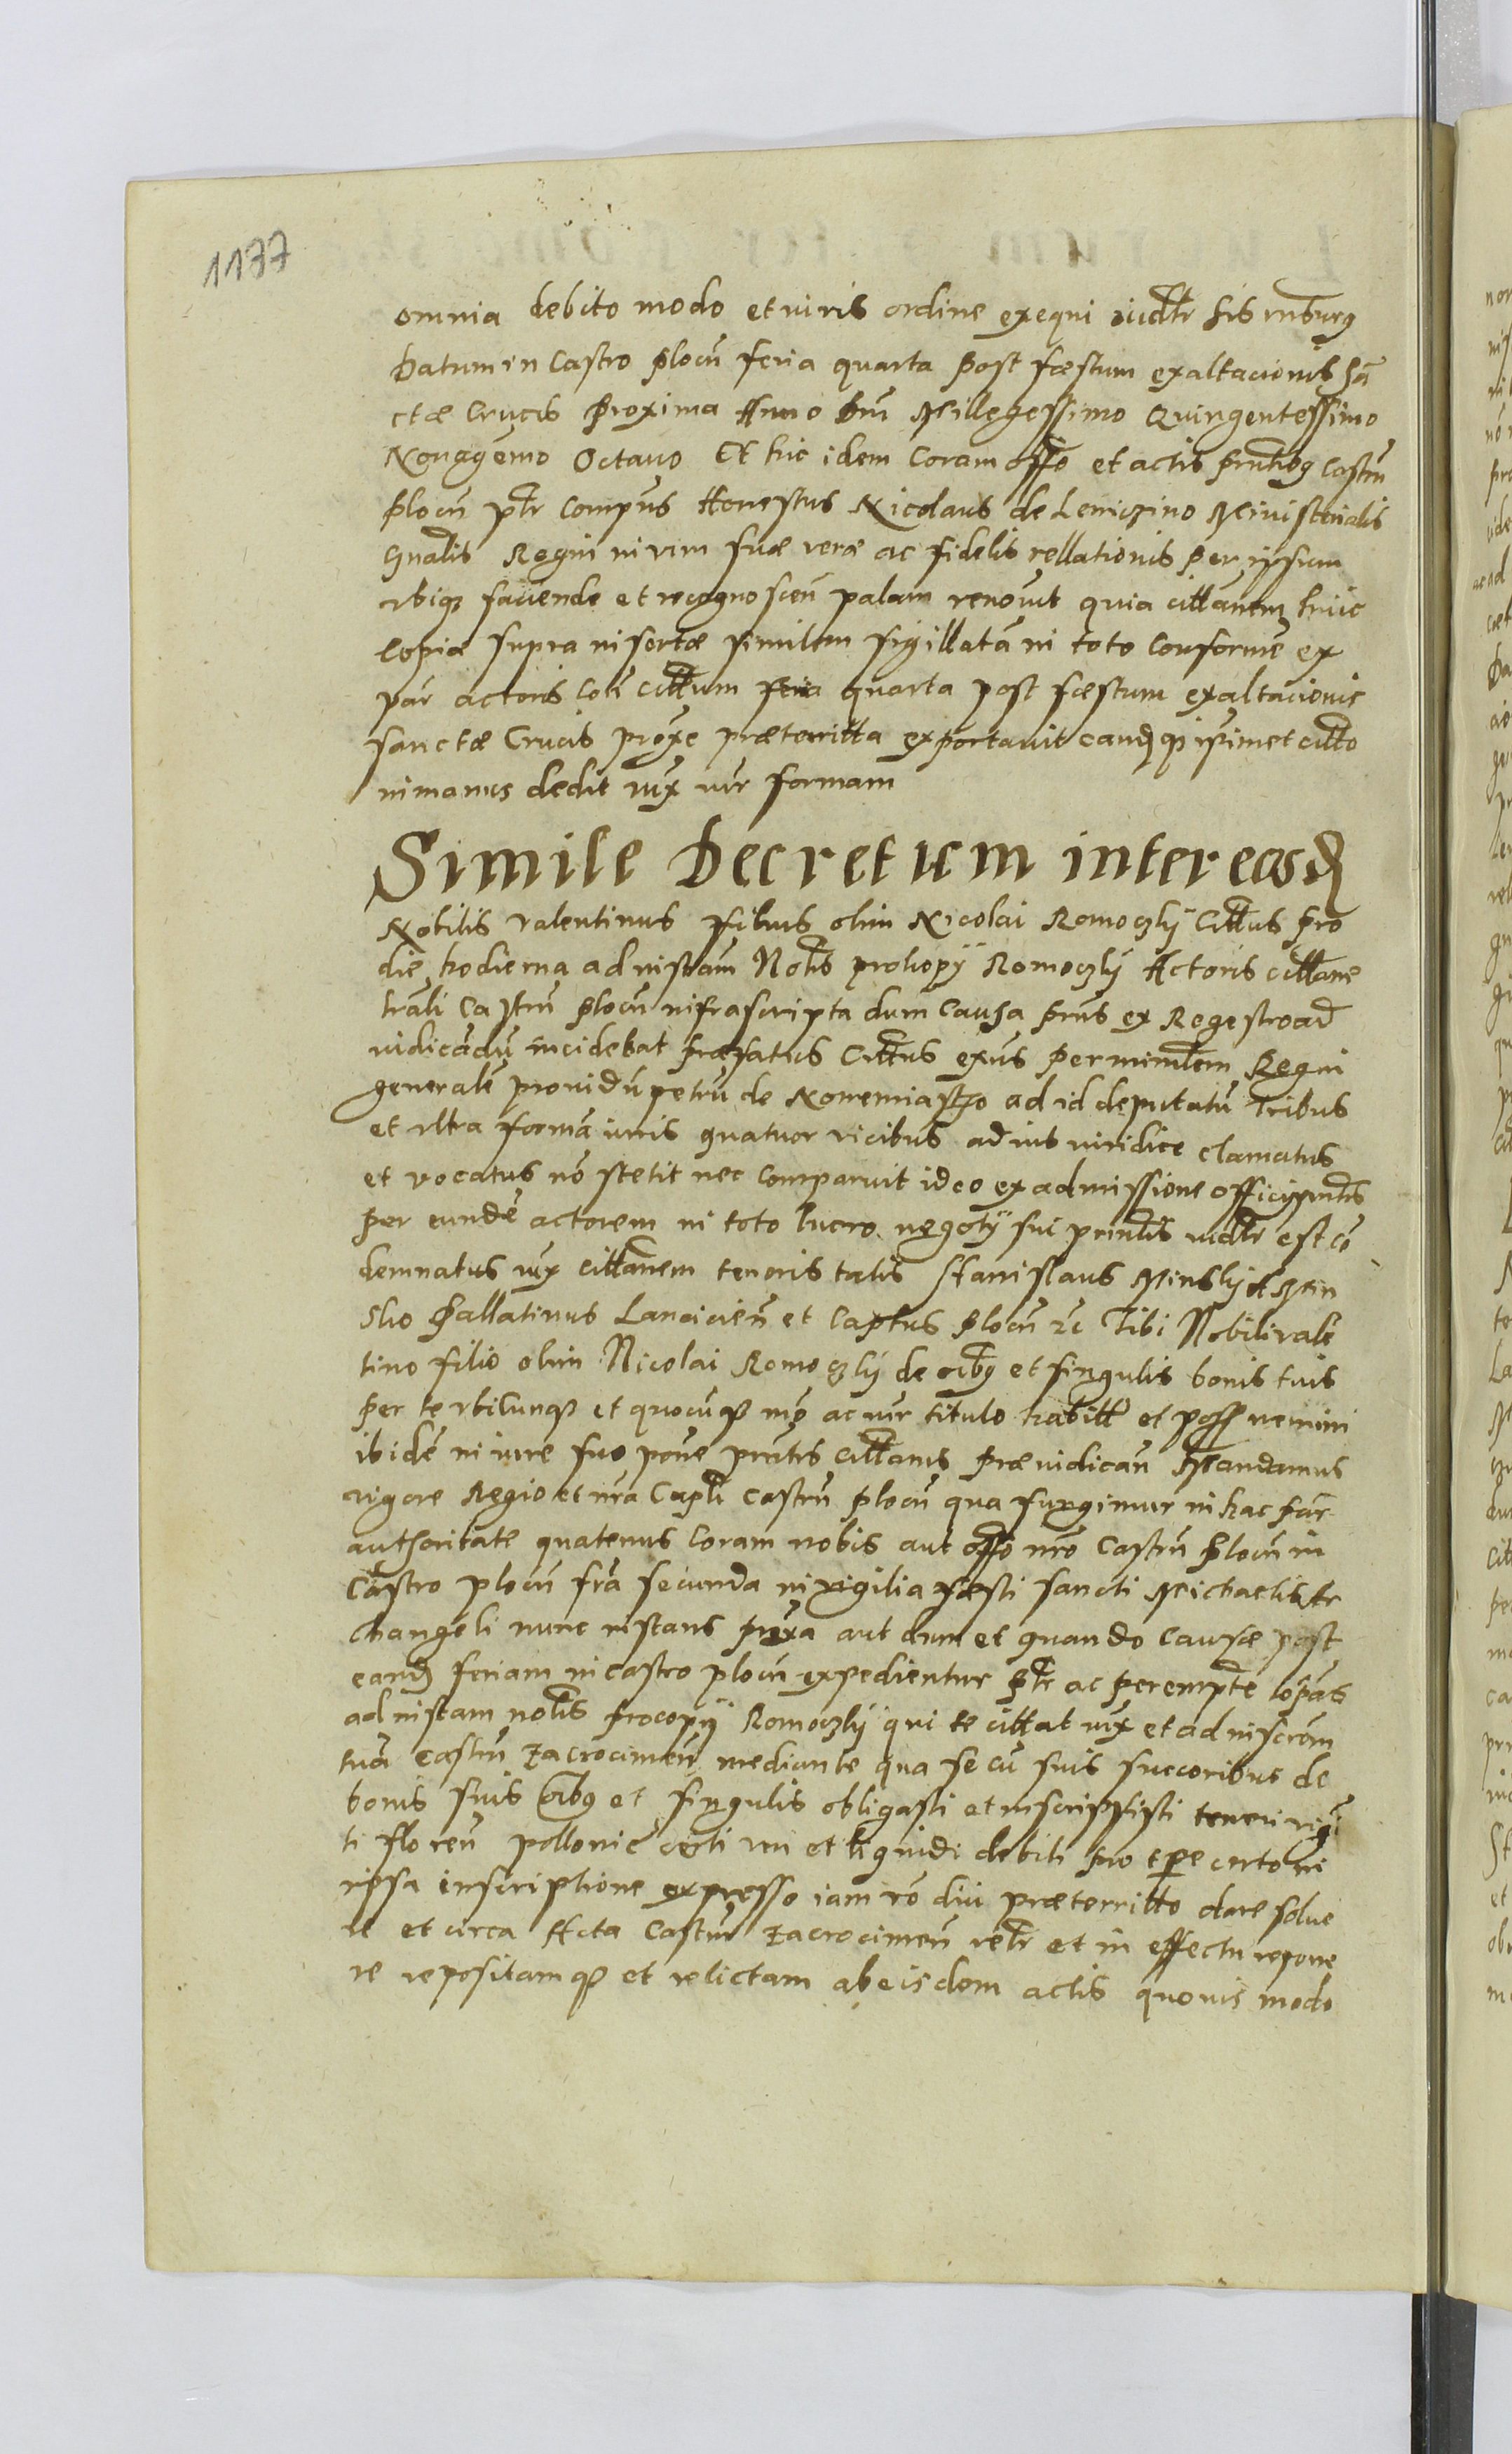 1177
omnia debito modo et iuris ordine exequi iudltr his insurg
Datum in Castro plocn feria quarta post fæstum exaltacionis sã
ctæ Crucis proxima Anno Dni Millegessimo Quingentessimo
Nonagẽmo Octauo Et hic idem Coram offo et actis pñtibg Castrn
plocn ptr Compns Honestus Nicolaus de Leniczino Ministerialis
Gnalis Regni in vim suæ veræ ac fidelis rellationis per ipsum
vbiqz faciende et recognoscen palam renouit quia cittãnem huic
Copiæ supra insertæ similem sigillatã in toto Conformẽ ex
par actoris Coñ cittum feria quarta post fæstum exaltacionis
sanctæ Crucis proxe præterritta exportauit eandqz ipsimet citto
in manus dedit iux iur formam
Simile Decretum inter eosd
Nobilis valentinus filius olim Nicolai Romoczky Cittus pro
die hodierna ad instam Nobis prokopij Romoczky Actoris cittane
trali Castrn plocn infrascripta dum Causa pñs ex Regestro ad
iudicãdũ incidebat præfatus Cittus exñs per minltem Regni
generalẽ prouidũ petrũ de Nouemiasto ad id deputatũ tribus
et vltra formã iuris quatuor vicibus ad ius iuridice clamatus
et vocatus nõ stetit nec Comparuit ideo ex admissione officij pntis
per eundẽ actorem in toto lucro negotij sui pñntis iudltr est cõ
demnatus iux cittanem tenoris talis Stanislaus Minsky de Min
sko Pallatinus Lancicien et Captus plocn zc Tibi Nobili vale
tino filio olim Nicolai Romoczky de oibg et singulis bonis tuis
per te vbicunqz et quocũqz mõ ac iur titulo habitt et poss nemini
ibidẽ in iure suo pone pntis cittanis præiudicañ Mandamus
vigore Regio et nrã Captli Castrn plocn qua fungimur in hac par
authoritate quatenus Coram nobis aut offo nro Castrn plocn in
Castro plocn frã secunda in vigilia fæsti sancti Michaelis Ar
changeli nunc instans prxa aut dum et quando Causæ post
eand feriam in castro plocn expedientur ptr ac peremptẽ Cõpãs
ad instam nobis procopij Romoczky qui te cittat iux et ad inscrom
tuã castrn Zacrocimen mediante qua se cũ suis succoribus de
bonis suis oibg et singulis obligasti et inscripsisti teneri vigĩ
ti florẽn pollonic certi veri et liquidi debiti pro tpe certo in
ipsa inscriptione expresso iam võ diu præterritto dare solue
re et circa Acta Castrn Zacrocimen reãltr et in effectu repone
re repositamqz et relictam ab eisdem actis quouis modo